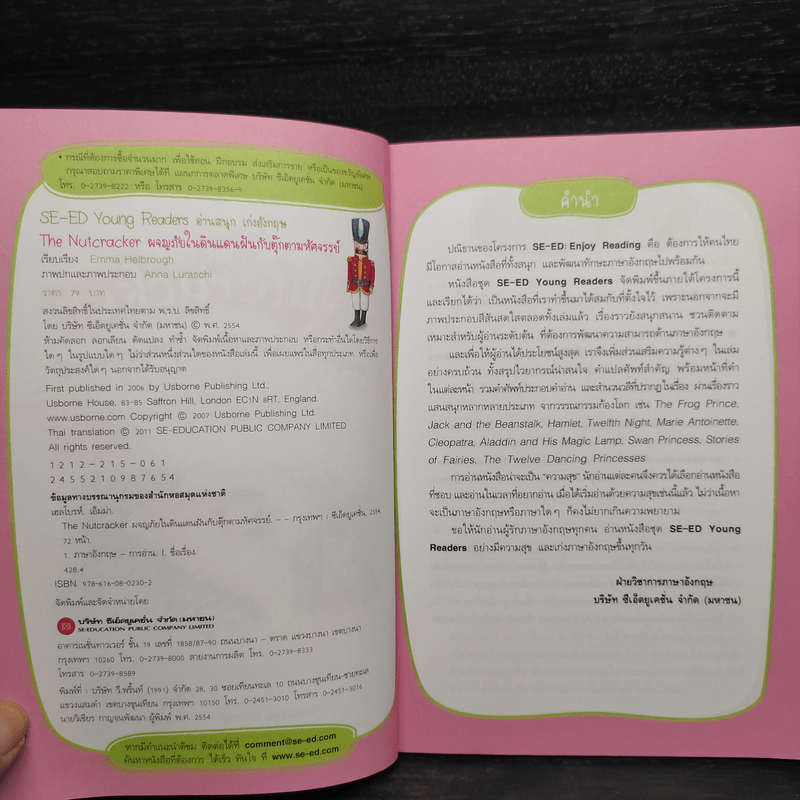 • กรณีที่ต้องการซื้อจำนวนมาก เพื่อใช้สอน ฝึกอบรม ส่งเสริมการขาย หรือเป็นของขวัญพิเศษ
กรุณาสอบถามราคาพิเศษได้ที่ แผนกการตลาดพิเศษ บริษัท ซีเอ็ดยูเคชั่น จำกัด (มหาชน)
โทร. 0-2739-8222 หรือ โทรสาร 0-2739-8356-9
SE-ED Young Readers อ่านสนุก เก่งอังกฤษ
The Nutcracker ผจญภัยในดินแดนฝันกับตุ๊กตามหัศจรรย์
เรียบเรียง Emma Helbrough
ภาพปกและภาพประกอบ Anna Luraschi
ราคา 79 บาท
สงวนลิขสิทธิ์ในประเทศไทยตาม พ.ร.บ. ลิขสิทธิ์
โดย บริษัท ซีเอ็ดยูเคชั่น จำกัด (มหาชน) © พ.ศ. 2554
ห้ามคัดลอก ลอกเลียน ดัดแปลง ทำซ้ำ จัดพิมพ์เนื้อหาและภาพประกอบ หรือกระทำอื่นใดโดยวิธีการ
ใด ๆ ในรูปแบบใด ๆ ไม่ว่าส่วนหนึ่งส่วนใดของหนังสือเล่มนี้ เพื่อเผยแพร่ในสื่อทุกประเภท หรือเพื่อ
วัตถุประสงค์ใด ๆ นอกจากได้รับอนุญาต
First published in 2006 by Usborne Publishing Ltd.,
Usborne House, 83-85 Saffron Hill, London EC1N 8RT, England.
www.usborne.com Copyright © 2007 Usborne Publishing Ltd.
Thai translation © 2011 SE-EDUCATION PUBLIC COMPANY LIMITED
All rights reserved.
1 2 1 2 - 2 1 5 - 0 6 1
2 4 5 5 2 1 0 9 8 7 6 5 4
ข้อมูลทางบรรณานุกรมของสำนักหอสมุดแห่งชาติ
เฮลโบรห์, เอ็มม่า.
The Nutcracker ผจญภัยในดินแดนฝันกับตุ๊กตามหัศจรรย์. -- กรุงเทพฯ : ซีเอ็ดยูเคชั่น, 2554.
72 หน้า.
1. ภาษาอังกฤษ - การอ่าน. I. ชื่อเรื่อง.
428.4
ISBN 978-616-08-0230-2
จัดพิมพ์และจัดจำหน่ายโดย
บริษัท ซีเอ็ดยูเคชั่น จำกัด (มหาชน)
SE-EDUCATION PUBLIC COMPANY LIMITED
อาคารเนชั่นทาวเวอร์ ชั้น 19 เลขที่ 1858/87-90 ถนนบางนา - ตราด แขวงบางนา เขตบางนา
กรุงเทพฯ 10260 โทร. 0-2739-8000 สายงานการผลิต โทร. 0-2739-8333
โทรสาร 0-2739-8589
พิมพ์ที่ : บริษัท วี.พริ้นท์ (1991) จำกัด 28, 30 ซอยเทียนทะเล 10 ถนนบางขุนเทียน-ชายทะเล
แขวงแสมดำ เขตบางขุนเทียน กรุงเทพฯ 10150 โทร. 0-2451-3010 โทรสาร 0-2451-3016
นายวิเชียร กาญจนพัฒนา ผู้พิมพ์ พ.ศ. 2554
หากมีคำแนะนำติชม ติดต่อได้ที่ comment@se-ed.com
ค้นหาหนังสือที่ต้องการ ได้เร็ว ทันใจ ที่ www.se-ed.com
คำนำ
ปณิธานของโครงการ SE-ED: Enjoy Reading คือ ต้องการให้คนไทย
มีโอกาสอ่านหนังสือที่ทั้งสนุก และพัฒนาทักษะภาษาอังกฤษไปพร้อมกัน
หนังสือชุด SE-ED Young Readers จัดพิมพ์ขึ้นภายใต้โครงการนี้
และเรียกได้ว่า เป็นหนังสือที่เราทำขึ้นมาได้สมกับที่ตั้งใจไว้ เพราะนอกจากจะมี
ภาพประกอบสีสันสดใสตลอดทั้งเล่มแล้ว เรื่องราวยังสนุกสนาน ชวนติดตาม
เหมาะสำหรับผู้อ่านระดับต้น ที่ต้องการพัฒนาความสามารถด้านภาษาอังกฤษ
และเพื่อให้ผู้อ่านได้ประโยชน์สูงสุด เราจึงเพิ่มส่วนเสริมความรู้ต่าง ๆ ในเล่ม
อย่างครบถ้วน ทั้งสรุปไวยากรณ์น่าสนใจ คำแปลศัพท์สำคัญ พร้อมหน้าที่คำ
ในแต่ละหน้า รวมคำศัพท์ประกอบคำอ่าน และสำนวนวลีที่ปรากฏในเรื่อง ผ่านเรื่องราว
แสนสนุกหลากหลายประเภท จากวรรณกรรมก้องโลก เช่น The Frog Prince,
Jack and the Beanstalk, Hamlet, Twelfth Night, Marie Antoinette,
Cleopatra, Aladdin and His Magic Lamp, Swan Princess, Stories
of Fairies, The Twelve Dancing Princesses
การอ่านหนังสือน่าจะเป็น "ความสุข" นักอ่านแต่ละคนจึงควรได้เลือกอ่านหนังสือ
ที่ชอบ และอ่านในเวลาที่อยากอ่าน เมื่อได้เริ่มอ่านด้วยความสุขเช่นนี้แล้ว ไม่ว่าเนื้อหา
จะเป็นภาษาอังกฤษหรือภาษาใด ๆ ก็คงไม่ยากเกินความพยายาม
ขอให้นักอ่านผู้รักภาษาอังกฤษทุกคน อ่านหนังสือชุด SE-ED Young
Readers อย่างมีความสุข และเก่งภาษาอังกฤษขึ้นทุกวัน
ฝ่ายวิชาการภาษาอังกฤษ
บริษัท ซีเอ็ดยูเคชั่น จำกัด (มหาชน)